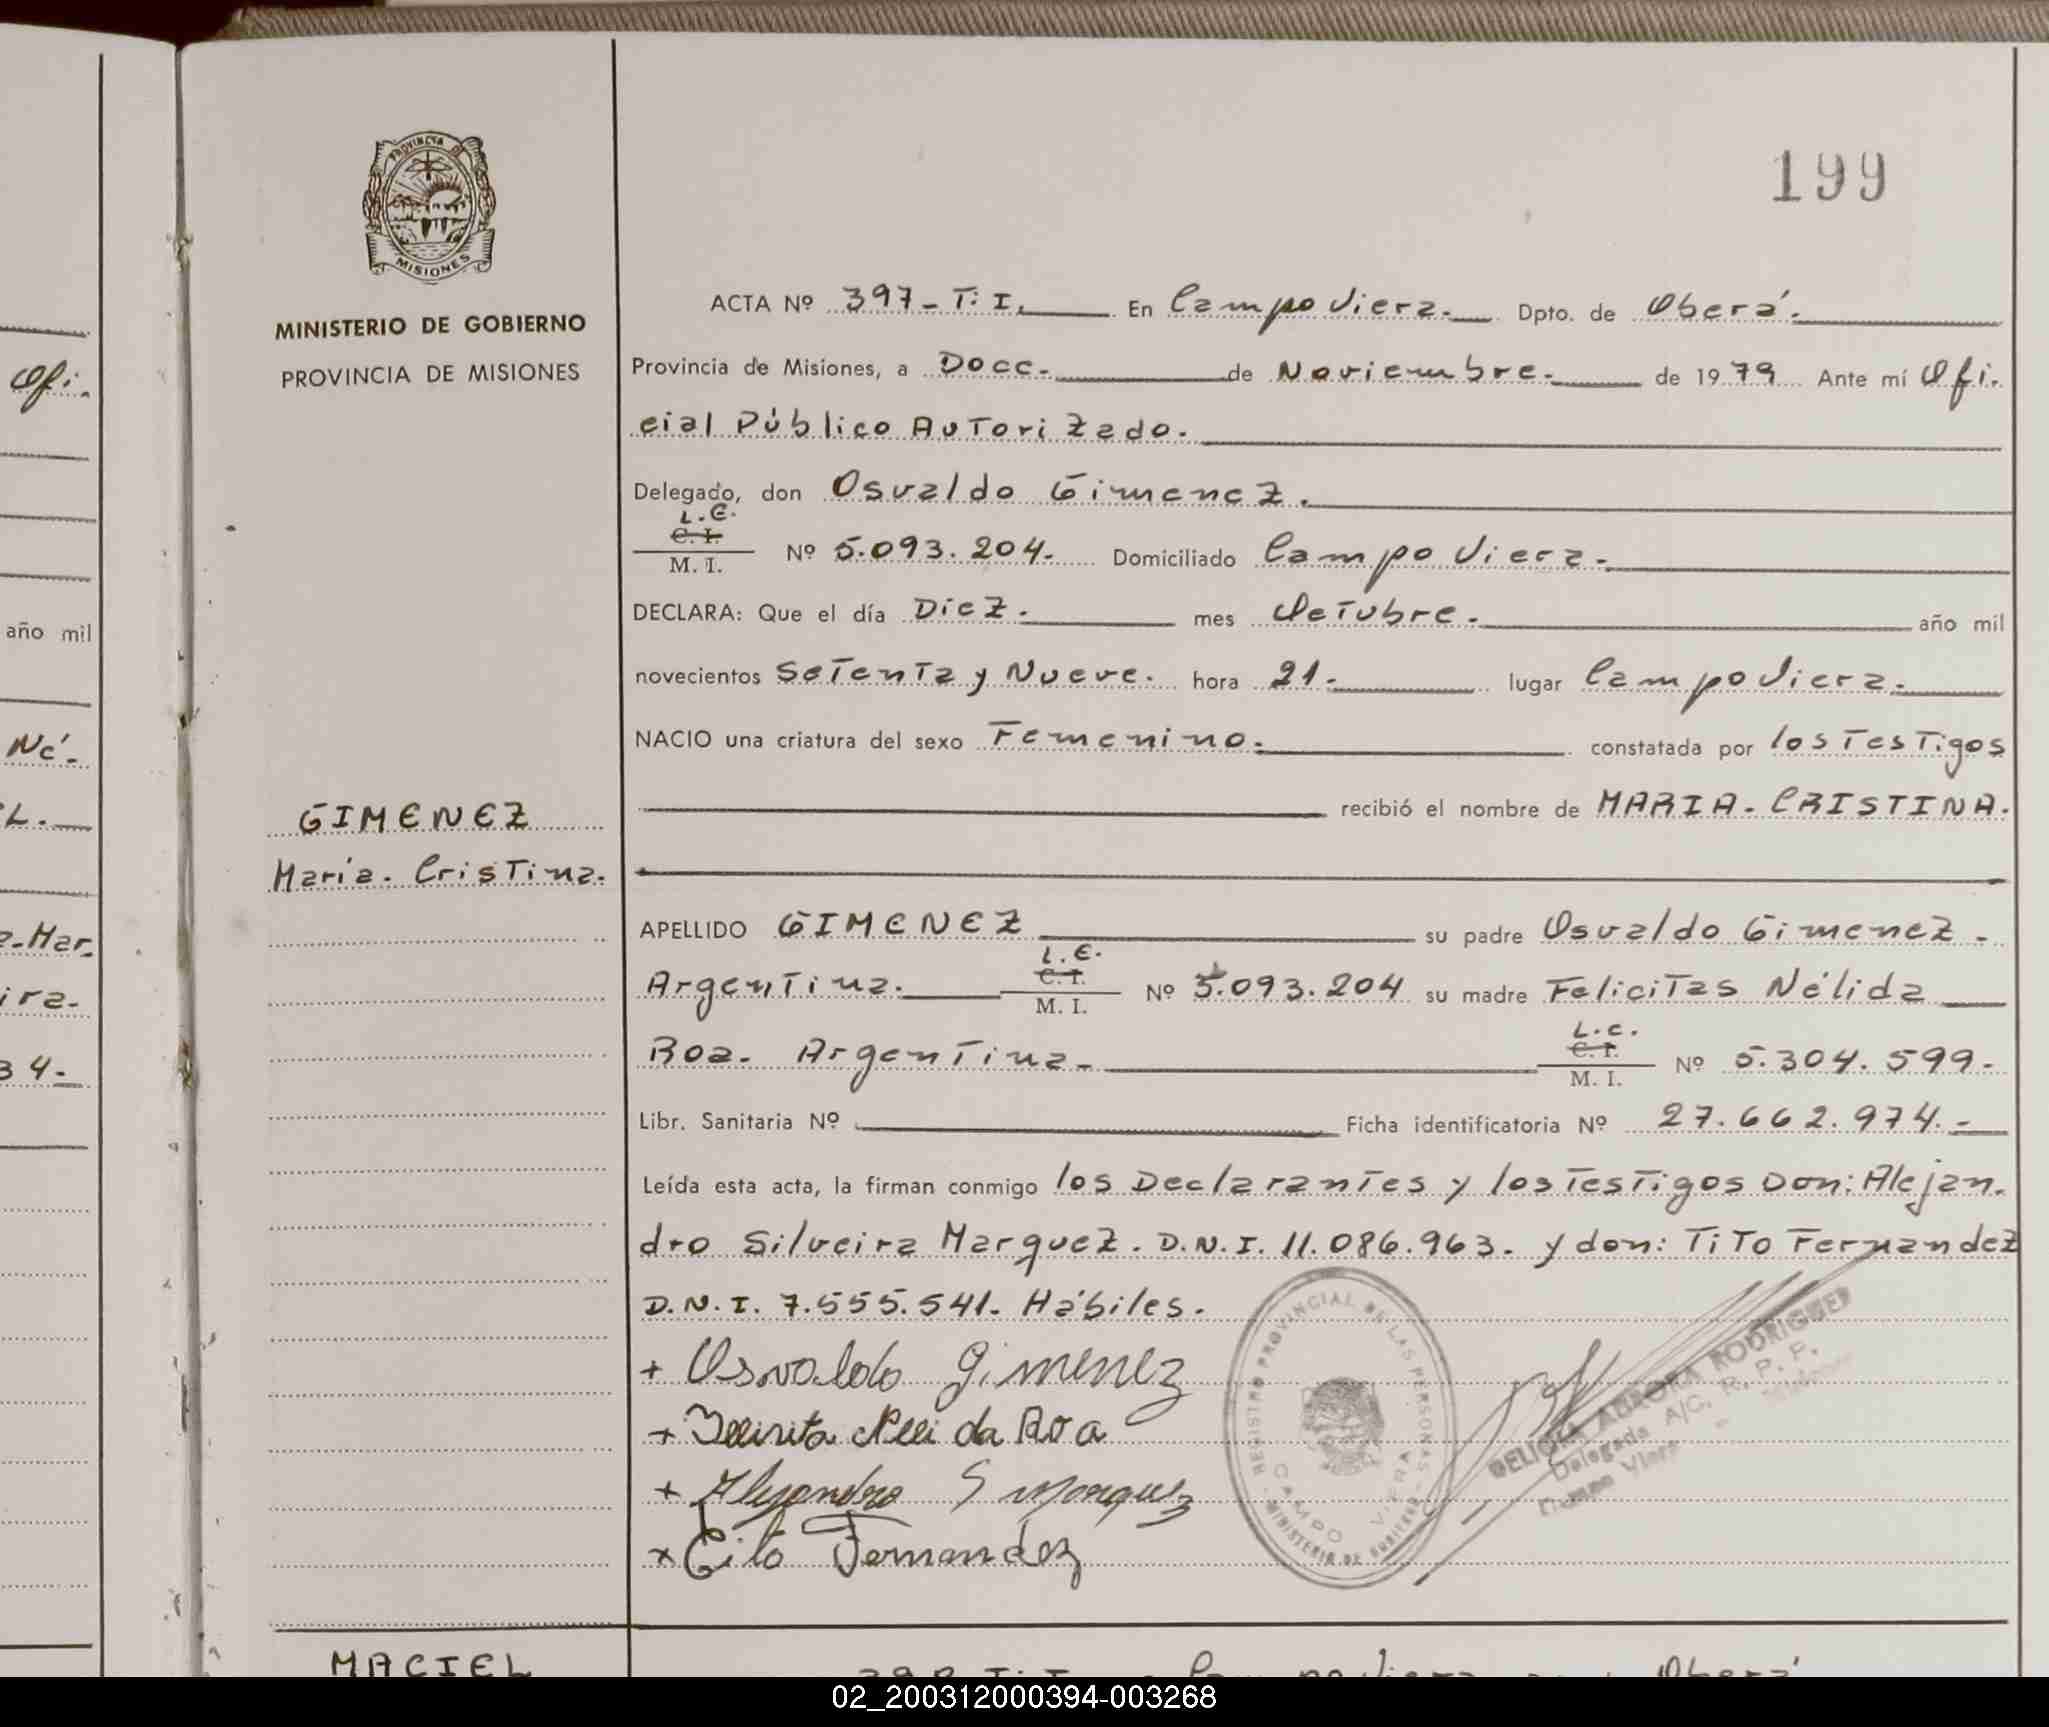 199
PROVINCIA DE
MISIONES
MINISTERIO DE GOBIERNO
PROVINCIA DE MISIONES
ACTA Nº 397-T: I. En Campo Viera. Dpto. de Oberá.
Provincia de Misiones, a Doce. de Noviembre. de 1979 Ante mí Ofi.
cial Público Autorizado.
Delegado, don Osvaldo Gimenez.
L.E.
C. I.
M. I.
Nº 5.093.204. Domiciliado Campo Viera.
DECLARA: Que el día Diez. mes Octubre. año mil
novecientos Setenta y Nueve. hora 21. lugar Campo Viera.
NACIO una criatura del sexo Femenino. constatada por los Testigos
recibió el nombre de MARIA. CRISTINA.
GIMENEZ
María. Cristina.
APELLIDO GIMENEZ su padre Osvaldo Gimenez.
Argentina. L.E.
C. I.
M. I.
Nº 5.093.204 su madre Felicitas Nélida
Roa. Argentina. L.C.
C. I.
M. I.
Nº 5.304.599-
Libr. Sanitaria Nº Ficha identificatoria Nº 27.662.974.-
Leída esta acta, la firman conmigo los Declarantes y los Testigos Don: Alejan.
dro Silveira Marquez. D.N.I. 11.086.963. y don: Tito Fernandez
D.N.I. 7.555.541. Hábiles.
+ Osvaldo Gimenez
+ Nelida Roa
+ Alejandro S Marquez
x Tito Fernandez
REGISTRO PROVINCIAL DE LAS PERSONAS
MINISTERIO DE GOBIERNO
CAMPO VIERA
AURORA RODRIGUEZ
Delegada A/C. R. P. P.
Campo Viera - Misiones
MACIEL
398 T: I. Campo Viera Oberá
Ofi.
año mil
Né.
L.
a-Mar.
ira.
34-
02_200312000394-003268